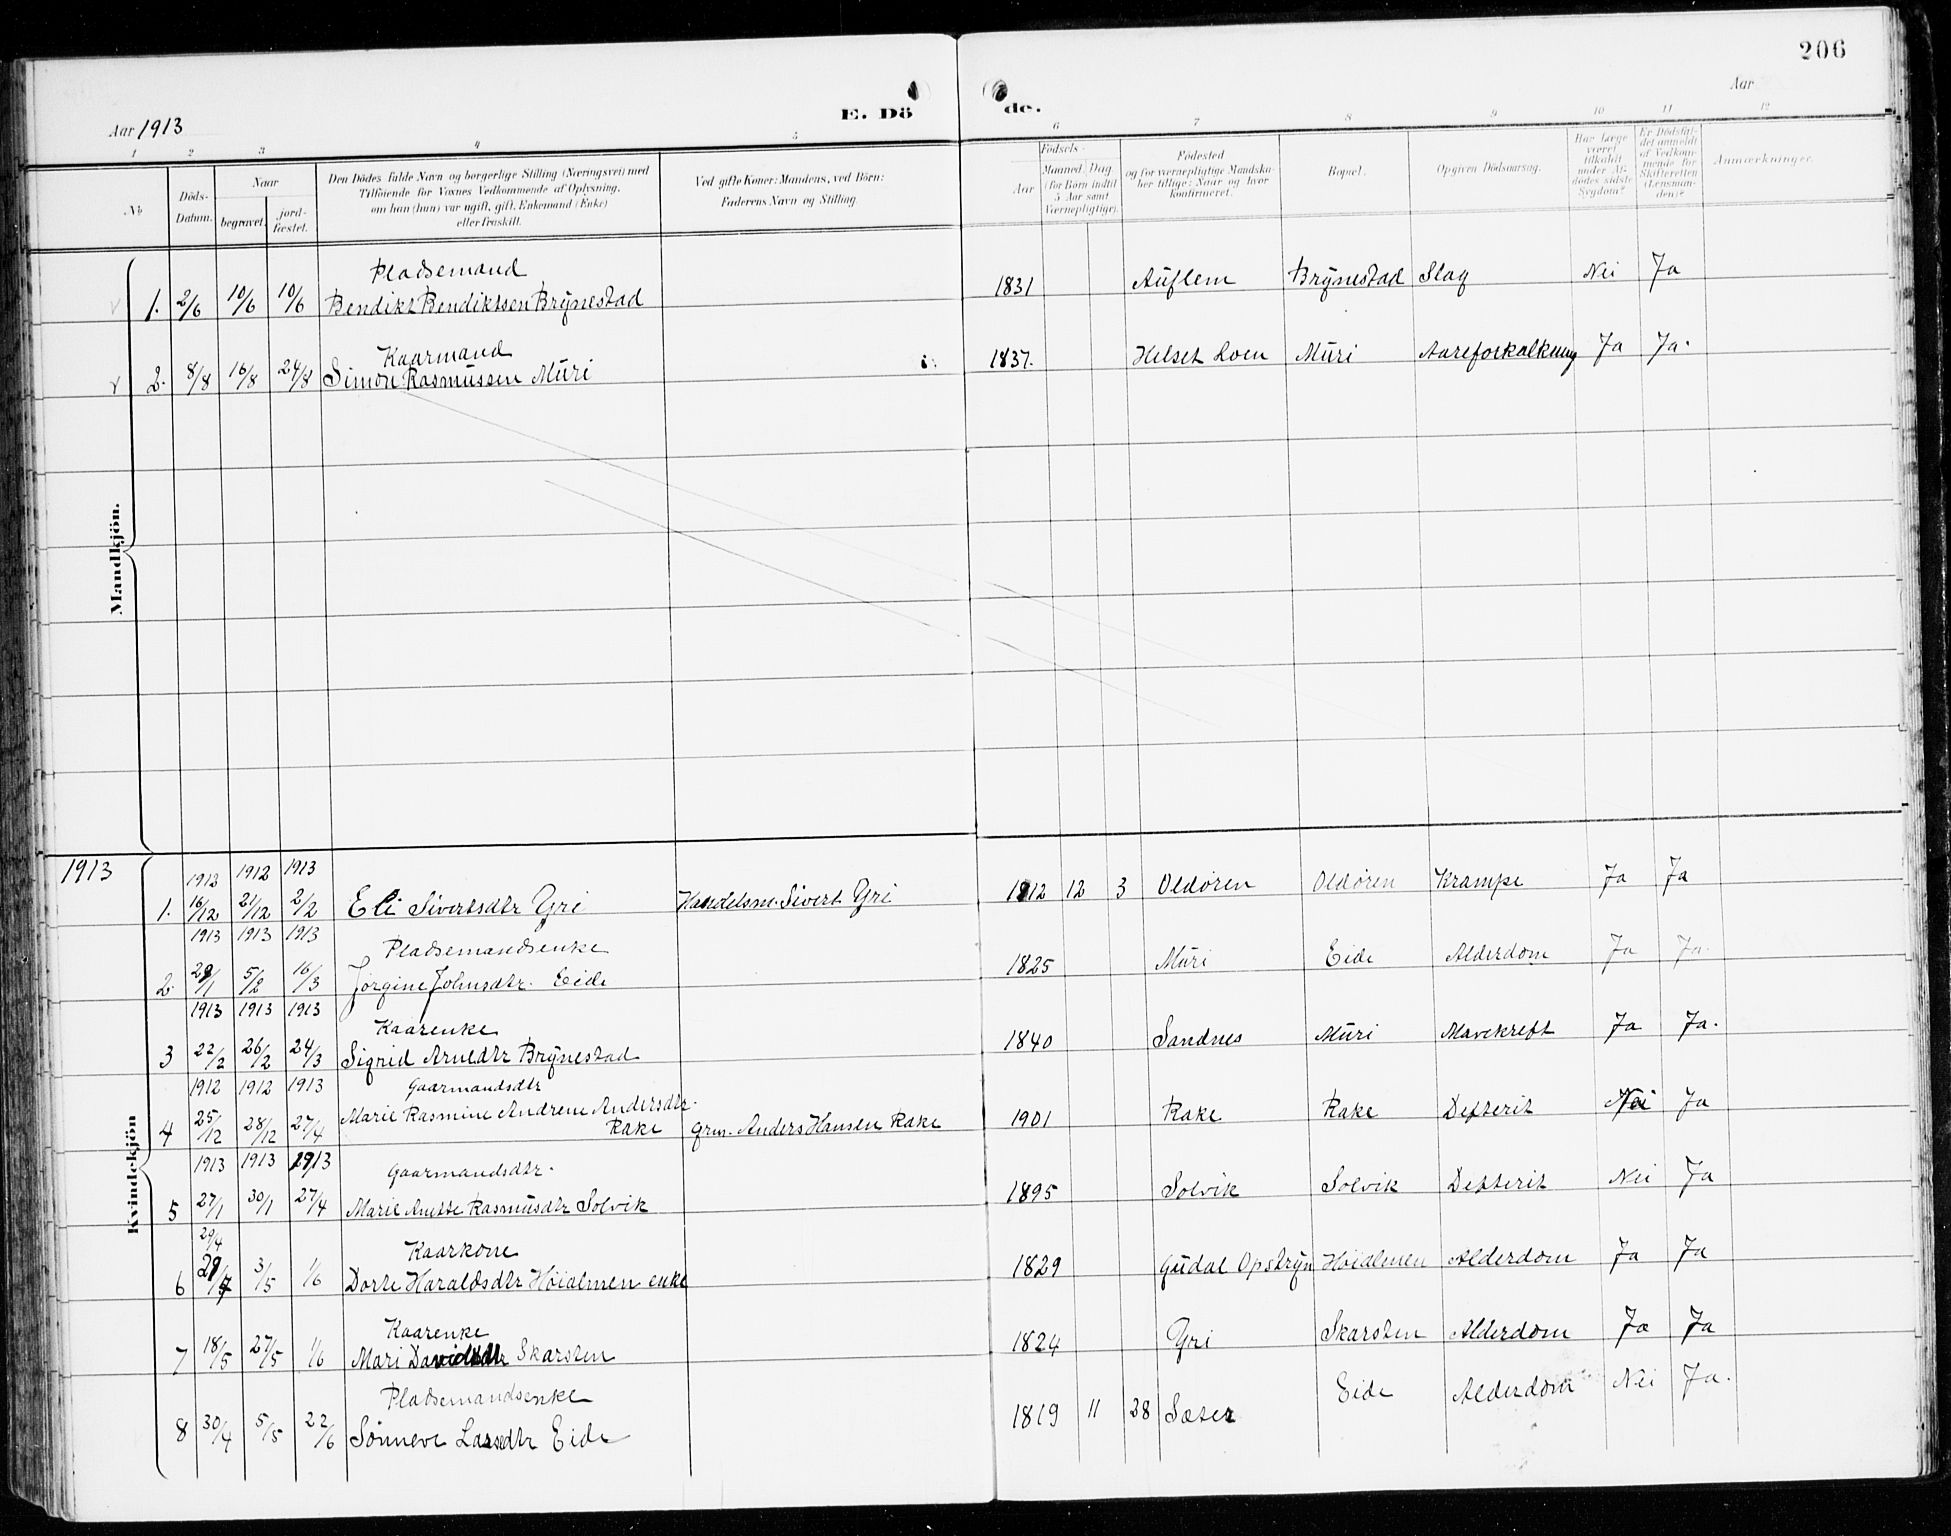 206
Aar 1913
E. Dö
de.
Aar
1 2 3 4 5 6 7 8 9 10 11 12
No
Döds-Datum.
Naar
begravet.
jord-fæstet.
Den Dödes fulde Navn og borgerlige Stilling (Næringsvei) med
Tilföiende for Voxnes Vedkommende af Oplysning,
om han (hun) var ugift, gift, Enkemand (Enke)
eller fraskilt.
Ved gifte Koner: Mandens, ved Börn:
Faderens Navn og Stilling.
Födsels-
Aar
Maaned Dag
(for Börn indtil
5 Aar samt
Værnepligtige).
Födested
og for værnepligtige Mandska-
ber tillige: Naar og hvor
konfirmeret.
Bopæl.
Opgiven Dödsaarsag.
Har læge
været
tilkaldt
under Af-
dödes sidste
Sygdom?
Er Dödsfal-
det anmeldt
af Vedkom-
mende for
Skifteretten
(Lensman-
den)?
Anmærkninger.
Mandkjön.
Pladsemand
1. 2/6 10/6 10/6 Bendikt Bendiktsen Brynestad 1831 Auflem Brynestad Slag Nei Ja
Kaarmand
2. 8/8 16/8 24/8 Simon Rasmussen Muri 1837. Helset Loen Muri Aareforkalkning Ja Ja.
1913
Kvindekjön
1912 1912 1913
1. 16/12 21/12 2/2 Eli Sivertsdtr Yri Handelsm. Sivert Yri 1912 12 3 Oldören Oldören Krampe Ja Ja
1913 1913 1913
Pladsemandsenke
2. 29/1 5/2 16/3 Jörgine Johnsdtr. Eide 1825 Muri Eide Alderdom Ja Ja.
1913 1913 1913
Kaarenke
3 22/2 26/2 24/3 Sigrid Arnedtr Brynestad 1840 Sandnes Muri Mavekreft Ja Ja.
1912 1912 1913
Gaarmandsdtr
4 25/12 28/12 27/4 Marie Rasmine Andrene Andersdtr. Rake Grm. Anders Hansen Rake 1901 Rake Rake Defterit Nei Ja
1913 1913 1913
Gaarmandsdtr.
5 27/1 30/1 27/4 Marie Anette Rasmusdtr Solvik 1895 Solvik Solvik Defterit Nei Ja
29/4
Kaarkone
6 3/5 1/6 Dorte Haraldsdtr Höialmen enke 1829 Gudal Opstryn Höialmen Alderdom Ja Ja
Kaarenke
7 18/5 27/5 1/6 Mari Davidsdtr Skarsten 1824 Yri Skarsten Alderdom Ja Ja
Pladsemandsenke
8 30/4 5/5 22/6 Sönneve Lassedtr Eide 1819 11 28 Sæter Eide Alderdom Nei Ja.